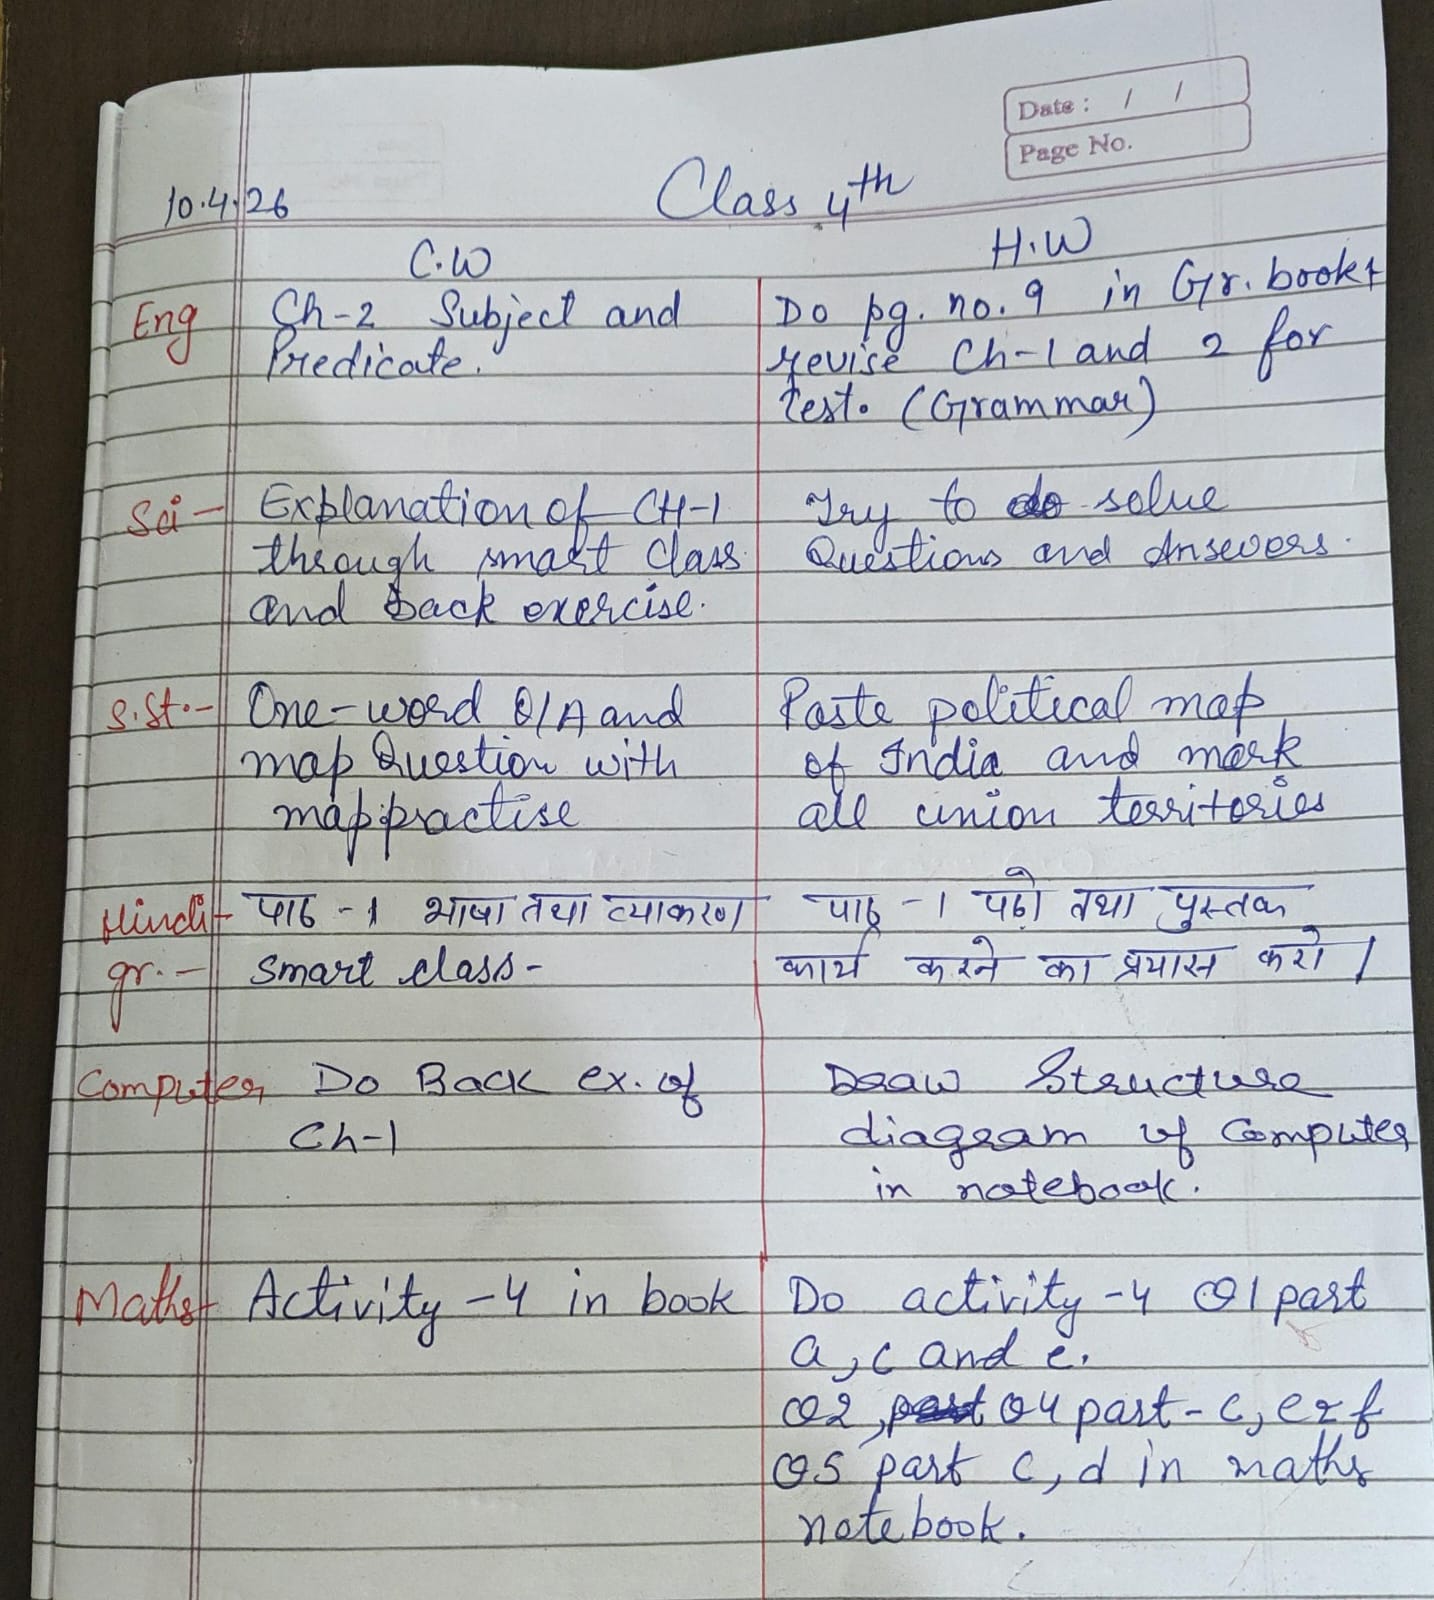 Date : / /
Page No.
10.4.26
Class 4th
C.W
H.W
Eng
Ch-2 Subject and
Predicate.
Do pg. no. 9 in Gr. book +
revise Ch-1 and 2 for
test. (Grammar)
Sci -
Explanation of CH-1
through smart class
and back exercise.
Try to solve
Questions and Answers.
S.St. -
One-word Q/A and
map Question with
map practise
Paste political map
of India and mark
all union territories
Hindi -
gr. -
पाठ -1 भाषा तथा व्याकरण
smart class -
पाठ -1 पढ़ो तथा पुस्तक
कार्य करने का प्रयास करो।
Computer
Do Back ex. of
Ch-1
Draw Structure
diagram of Computer
in notebook.
Maths -
Activity -4 in book
Do activity -4 Q1 part
a, c and e.
Q2, Q4 part - c, e f
Q5 part c, d in maths
notebook.